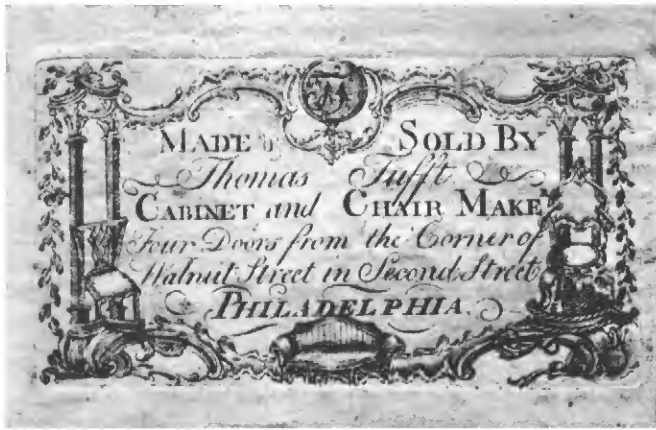 MADE & SOLD BY
Thomas Tufft
CABINET and CHAIR MAKE
Four Doors from the Corner of
Walnut Street in Second Street
PHILADELPHIA.